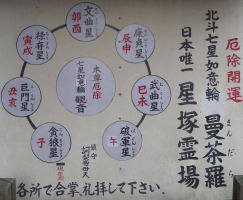 厄除開運
北斗七星如意輪 曼荼羅
まんだら
日本唯一 星塚霊場
文曲星
卯酉
廉貞星
辰申
武曲星
巳未
破軍星
午
貪狼星
子
巨門星
丑亥
禄存星
寅戌
本尊厄除
七星如意輪観音
鎮守
各所で合掌、礼拝して下さい。